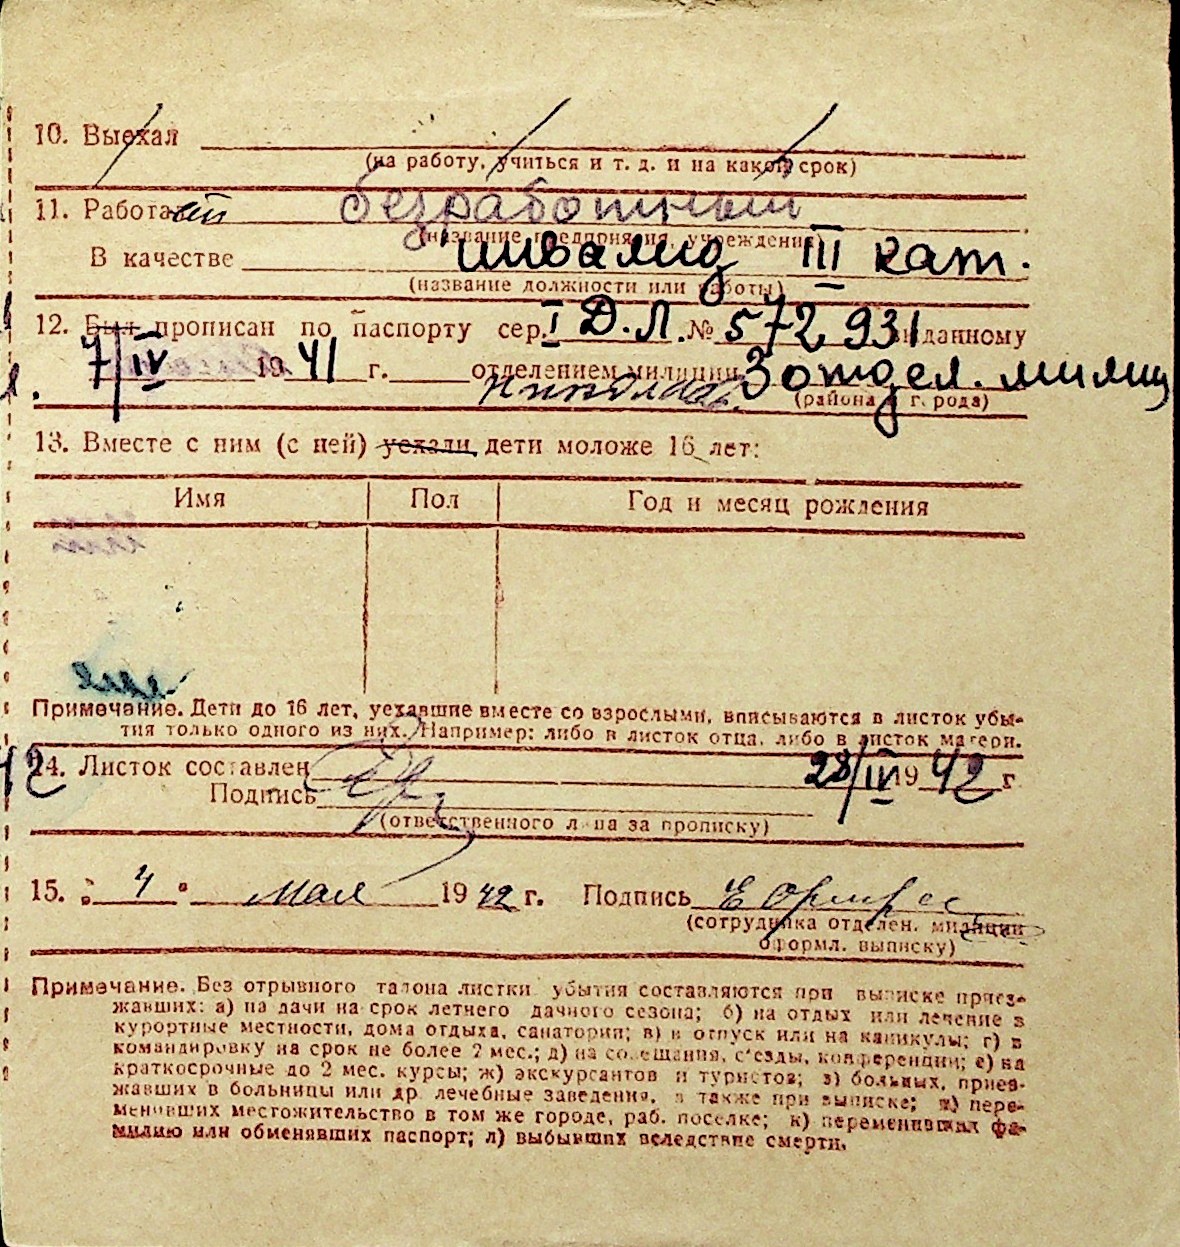 10. Выехал
(на работу, учиться и т. д. и на какой срок)
11. Работает безработный
(название предприятия, учреждения)
В качестве инвалид III кат.
(название должности или работы)
12. Был прописан по паспорту сер. I Д.Л. № 572931 выданному
7/IV 1941 г. отделением милиции 3 отдел. милиц
(района и города)
13. Вместе с ним (с ней) уехали дети моложе 16 лет:
Имя Пол Год и месяц рождения
Примечание. Дети до 16 лет, уехавшие вместе со взрослыми, вписываются в листок убы-
тия только одного из них. Например: либо в листок отца, либо в листок матери.
14. Листок составлен 28/IV 1942 г
Подпись
(ответственного лица за прописку)
15. 4 мая 1942 г. Подпись
(сотрудника отделен. милиции
оформл. выписку)
Примечание. Без отрывного талона листки убытия составляются при выписке приез-
жавших: а) на дачи на срок летнего дачного сезона; б) на отдых или лечение в
курортные местности, дома отдыха, санатории; в) в отпуск или на каникулы; г) в
командировку на срок не более 2 мес.; д) на совещания, с'езды, конференции; е) на
краткосрочные до 2 мес. курсы; ж) экскурсантов и туристов; з) больных, приез-
жавших в больницы или др. лечебные заведения, а также при выписке; и) пере-
менивших местожительство в том же городе, раб. поселке; к) переменивших фа-
милию или обменявших паспорт; л) выбывших вследствие смерти.